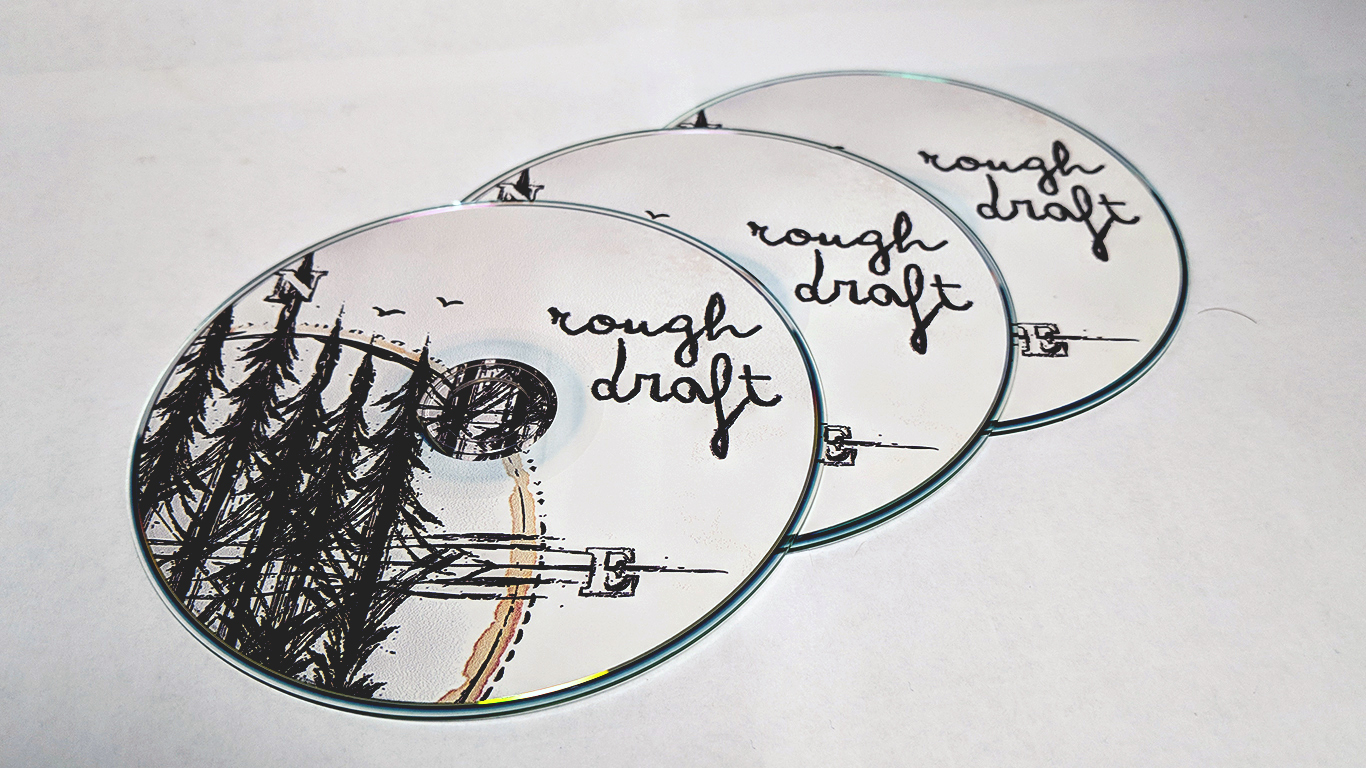 N
rough
draft
E
N
rough
draft
E
rough
draft
E